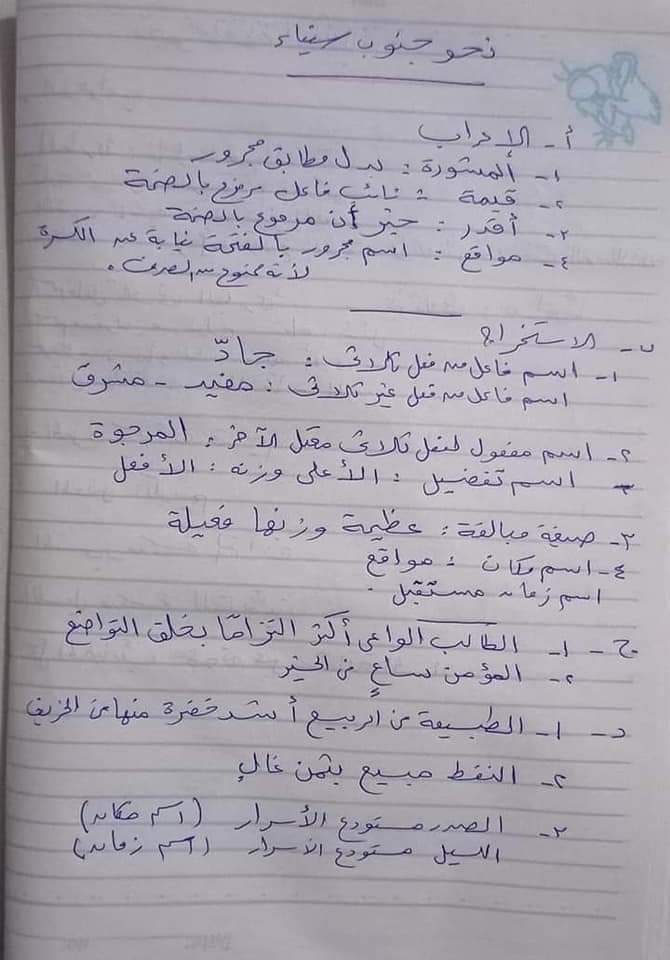 نحو جنوب سيناء
أ - الإعراب
١- المشورة : بدل مطابق مجرور
٢- قيمة : نائب فاعل مرفوع بالضمة
٣- أقدر : خبر أن مرفوع بالضمة
٤- مواقع : اسم مجرور بالفتحة نيابة عن الكسرة
لأنه ممنوع من الصرف .
ب - الاستخراج
١- اسم فاعل من فعل ثلاثى : جادّ
اسم فاعل من فعل غير ثلاثى : مفيد - مشرق
٢- اسم مفعول لفعل ثلاثى معتل الآخر : المرجوة
- اسم تفضيل : الأعلى وزنه : الأفعل
٣- صيغة مبالغة : عظيمة وزنها فعيلة
٤- اسم مكان : مواقع
اسم زمان مستقبل .
ج - ١- الطالب الواعى أكثر التزامًا بخلق التواضع
٢- المؤمن ساعٍ فى الخير
د - ١- الطبيعة فى الربيع أشد خضرة منها فى الخريف
٢- النفط مبيع بثمن غالٍ
٣- الصدر مستودع الأسرار (اسم مكان)
الليل مستودع الأسرار (اسم زمان)